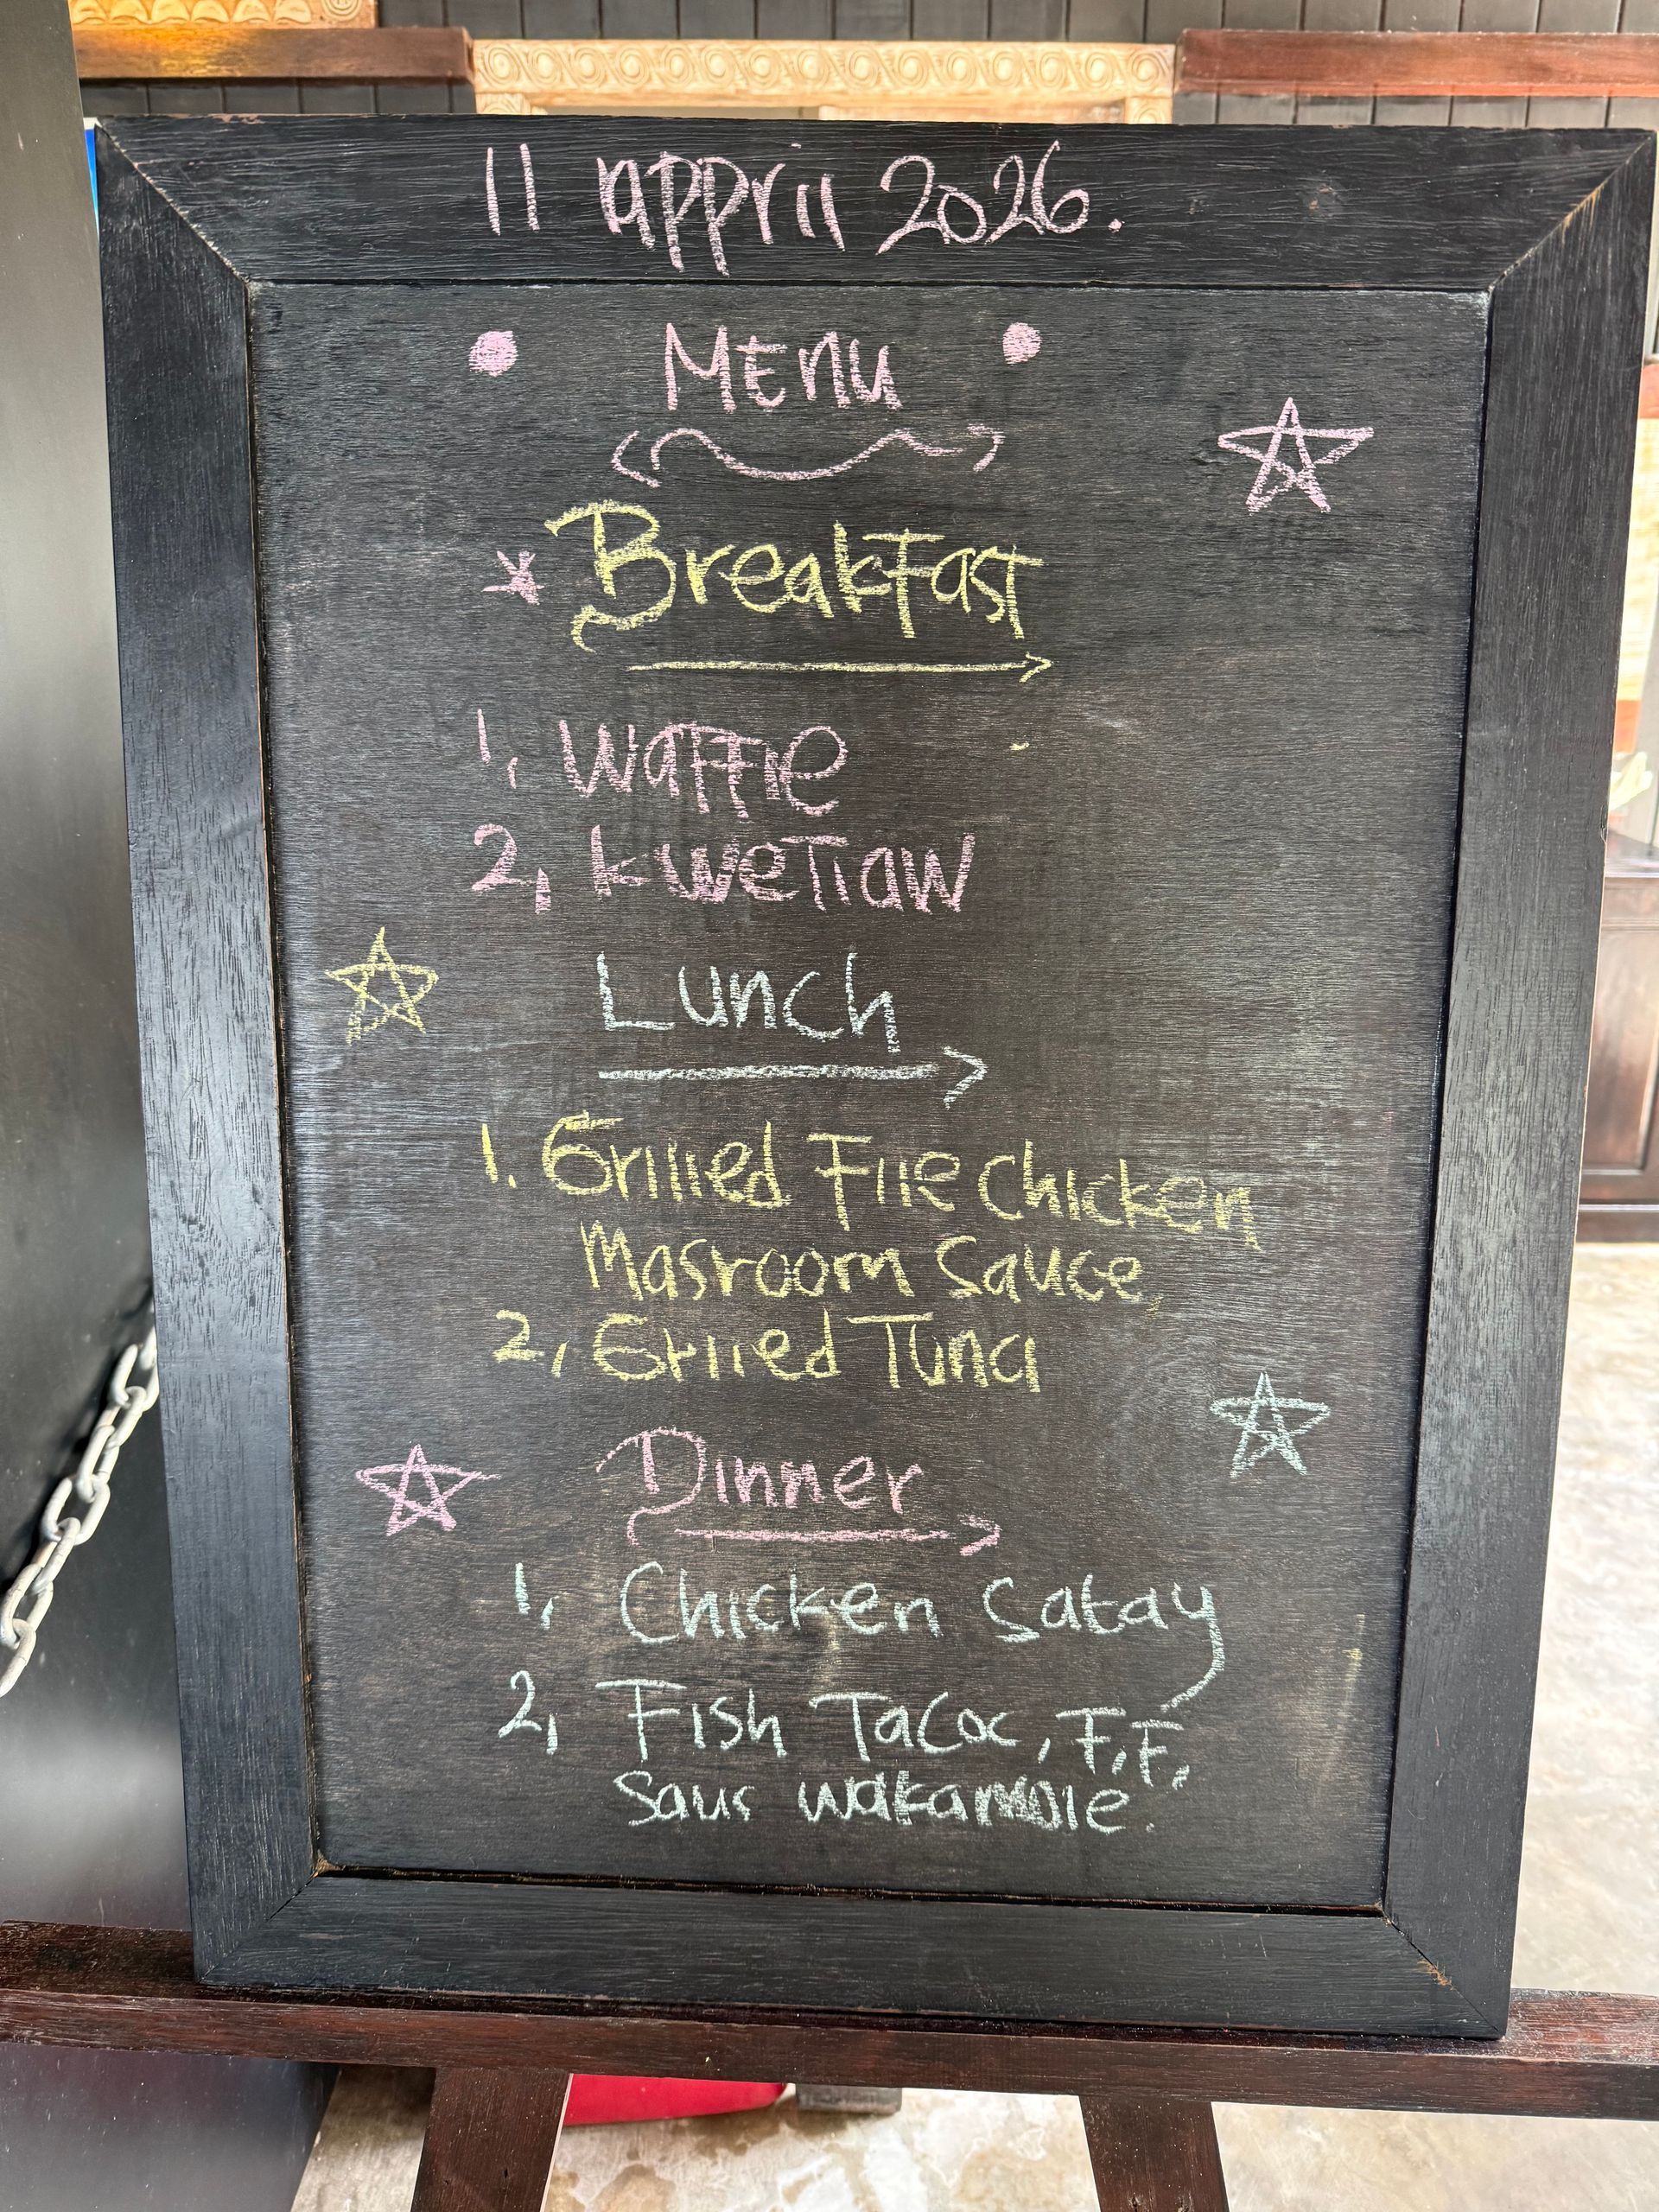 11 appril 2026.
Menu
Breakfast
1, Waffle
2, kwetiaw
Lunch
1. Grilled File Chicken
Masroom Sauce,
2, Grilled Tuna
Dinner
1, Chicken Satay
2, Fish Taco, F.F,
Saus wakamole.